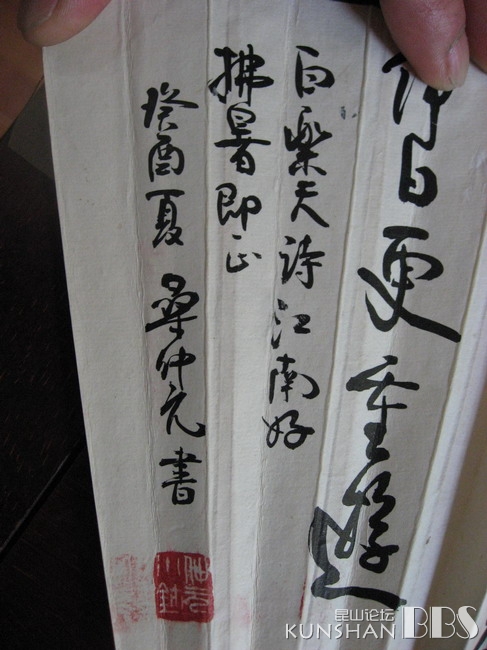 何日更重遊
白樂天詩江南好
拂暑即正
癸酉夏 桑仲元書
昆山论坛
KUNSHAN BBS